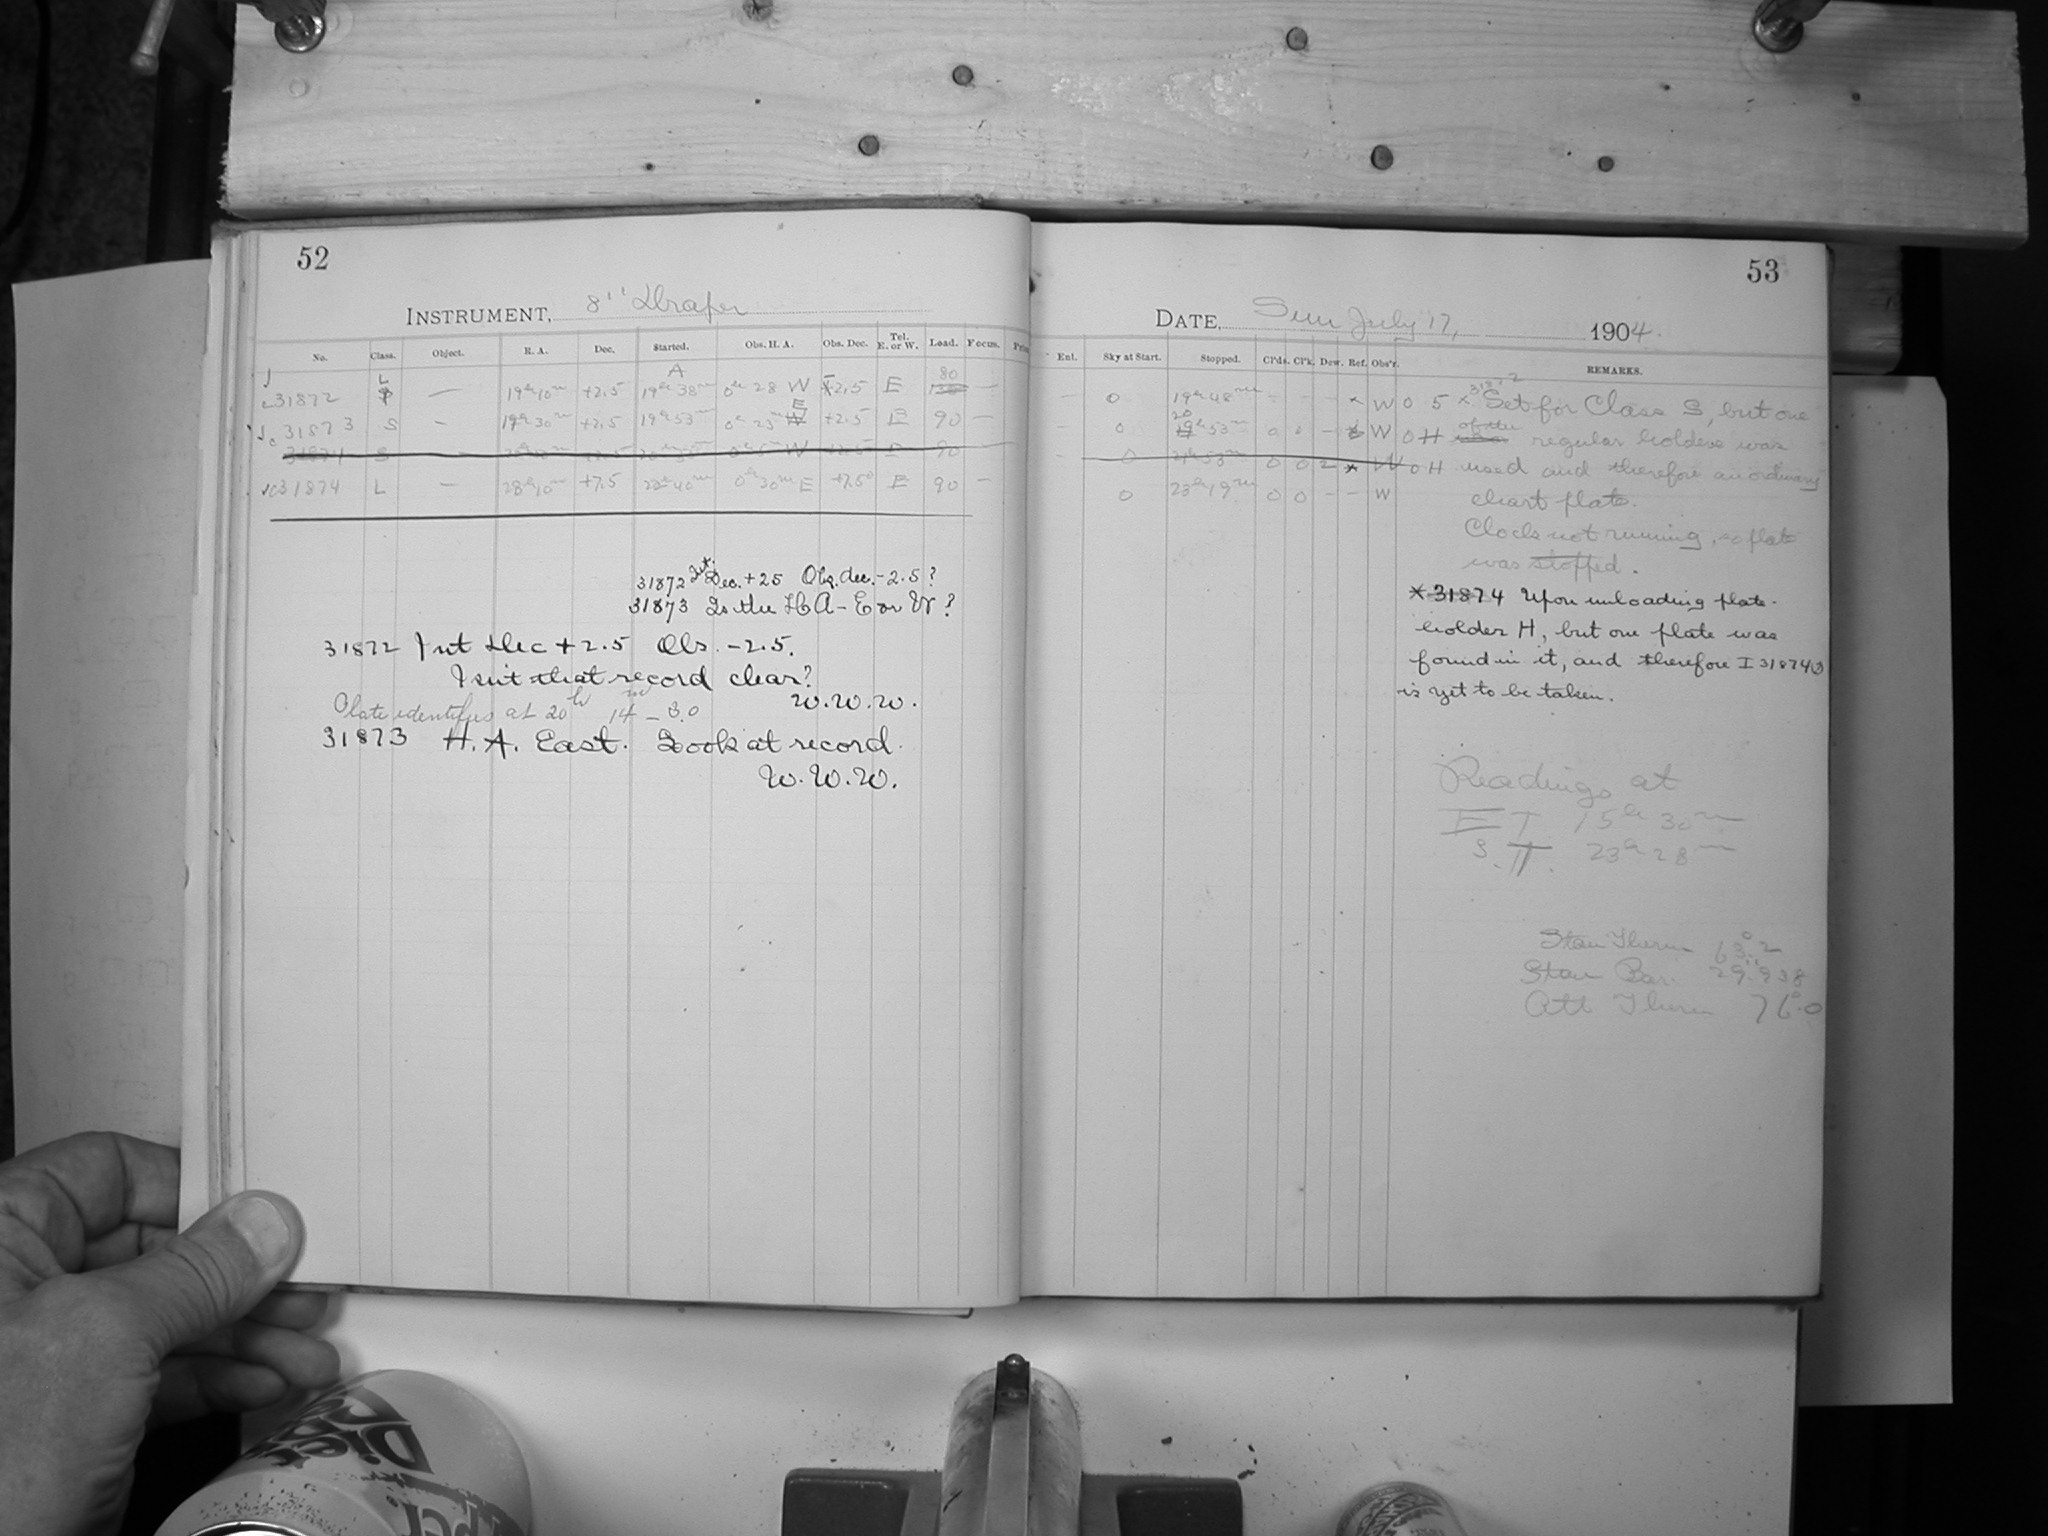 52
INSTRUMENT, 8" Draper
No. Class. Object. R. A. Dec. Started. Obs. H. A. Obs. Dec. Tel. E. or W. Load. Focus.
31872 L — 19h 10m +2.5 19h 38m 0h 28 W 2.5 E 80 —
31873 S — 19h 30m +2.5 19h 53m 0h 23m E +2.5 E 90 —
31874 S W 90
31874 L — 23h 10m +7.5 22h 40m 0h 30m E +7.5 E 90 —
31872 Int. Dec. +25 Obs. dec. -2.5?
31873 Is the HA - E or W?
31872 Int Dec +2.5 Obs. -2.5.
Isn't that record clear?
W.W.W.
Plate identifies at 20h 14m -3.0
31873 H.A. East. Look at record.
W.W.W.
53
DATE, Sun July 17, 1904.
Enl. Sky at Start. Stopped. Cl'ds. Cl'k. Dew. Ref. Obs'r. REMARKS.
- 0 19h 48m - - - x W 0 5 x 31872 Set for Class S, but one
- 0 20 53m 0 - W 0 H of the regular holders was
- 0 21h 53m 0 0 2 * W 0 H used and therefore an ordinary
0 23h 19m 0 0 - - W chart plate.
Clock not running, so plate
was stopped.
* 31874 Upon unloading plate-
holder H, but one plate was
found in it, and therefore I 31874
is yet to be taken.
Readings at
E T 15h 30m
S. T. 23h 28m
Stan Therm 63°.2
Stan Bar. 29".938
Att Therm 76°.0
Diet